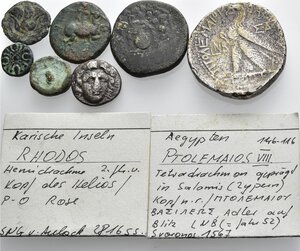 Karische Inseln
RHODOS
Hemidrachme 2. Jh. v.
Kopf des Helios/
P-O Rose
SNG v. Aulock 2816 ss.
Aegypten 146-116
PTOLEMAIOS VIII.
Tetradrachmon geprägt
in Salamis (Zypern)
Kopf n. r./ΠΤΟΛΕΜΑΙΟΥ
ΒΑΣΙΛΕΩΣ Adler auf
Blitz LNB (= Jahr 52)
Svoronos 1567